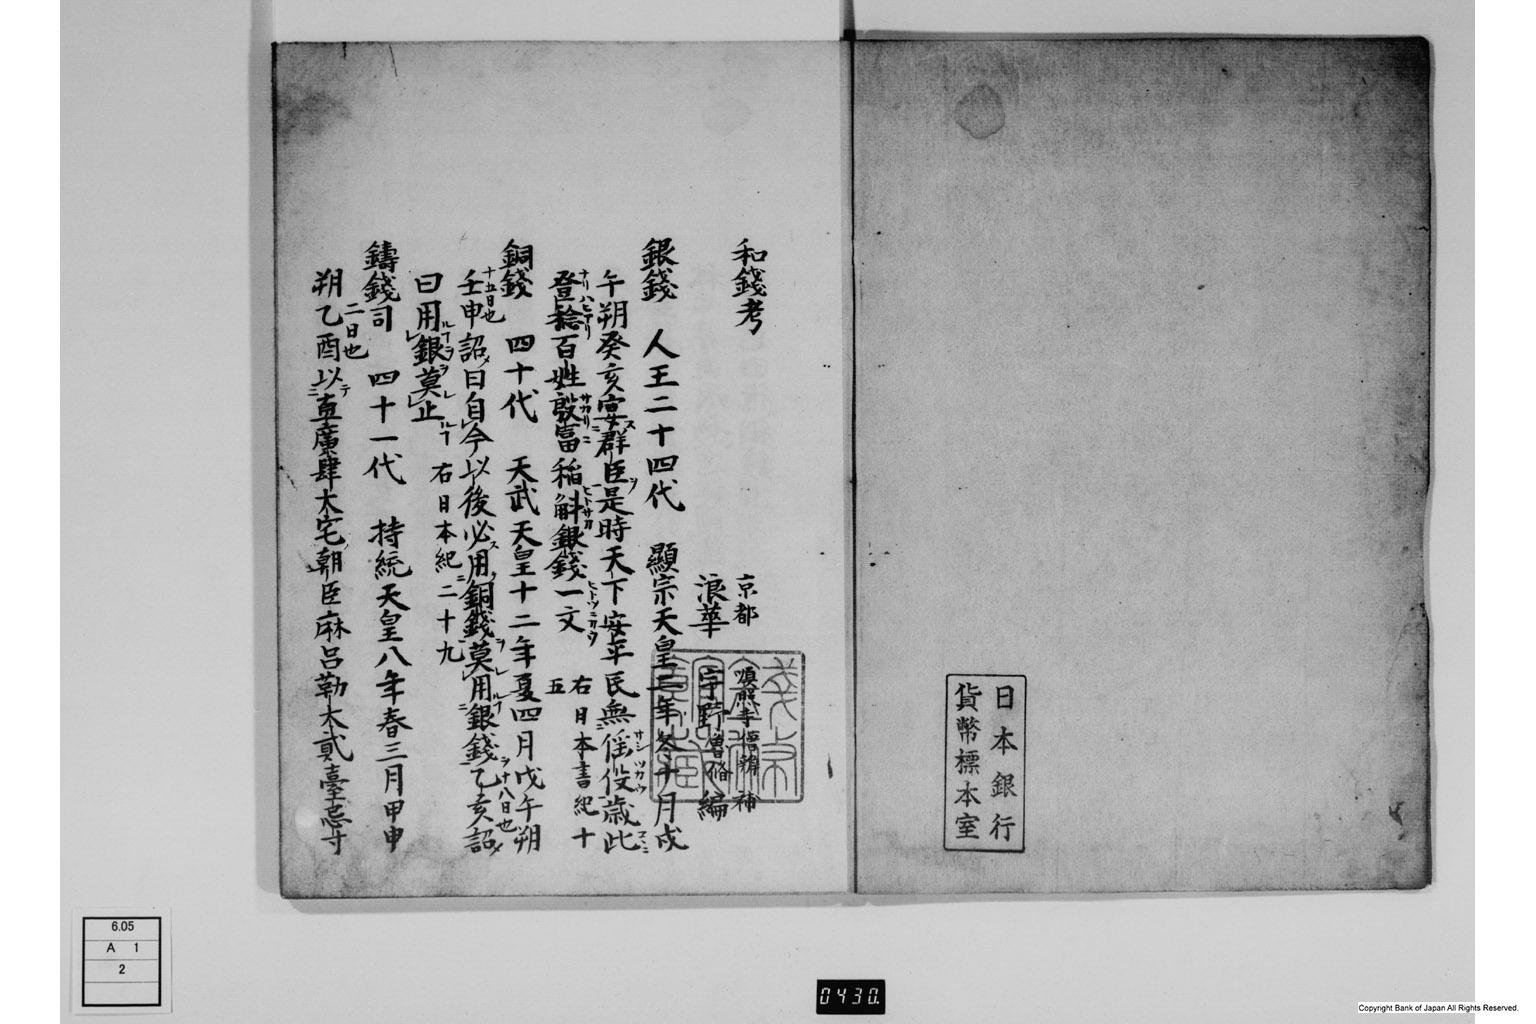 日本銀行
貨幣標本室
和錢考
京都
順照寺僧
補
浪華
宇野
編
銀錢 人王二十四代 顯宗天皇二年冬十月戊
午朔癸亥宴群臣是時天下安平民無徭役歲比
登稔百姓殷富稲斛銀錢一文 右日本書紀十
五
銅錢 四十代 天武天皇十二年夏四月戊午朔
壬申詔曰自今以後必用銅錢莫用銀錢乙亥詔
十五日也
十八日也
曰用銀莫止 右日本紀二十九
鑄錢司 四十一代 持統天皇八年春三月甲申
朔乙酉以直廣肆大宅朝臣麻呂勒大貳臺忌寸
二日也
6.05
A 1
2
0430.
Copyright Bank of Japan All Rights Reserved.